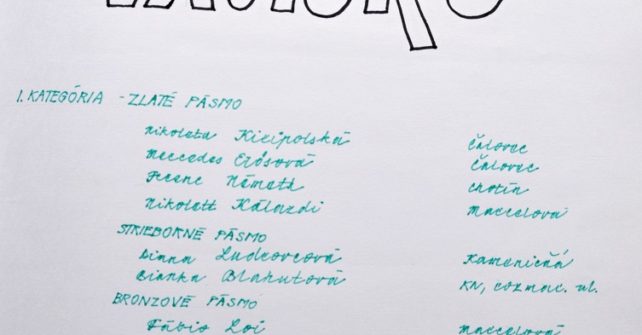 I. KATEGÓRIA - ZLATÉ PÁSMO
Nikoleta Kicipolská Čalovec
Mercedes Erősová Čalovec
Ferenc Németh Chotín
Nikolett Kálazdi Marcelová
STRIEBORNÉ PÁSMO
Diana Ludcovcová Kameničná
Bianka Blahutová KN, rozmar. ul.
BRONZOVÉ PÁSMO
Fábio Loi Marcelová